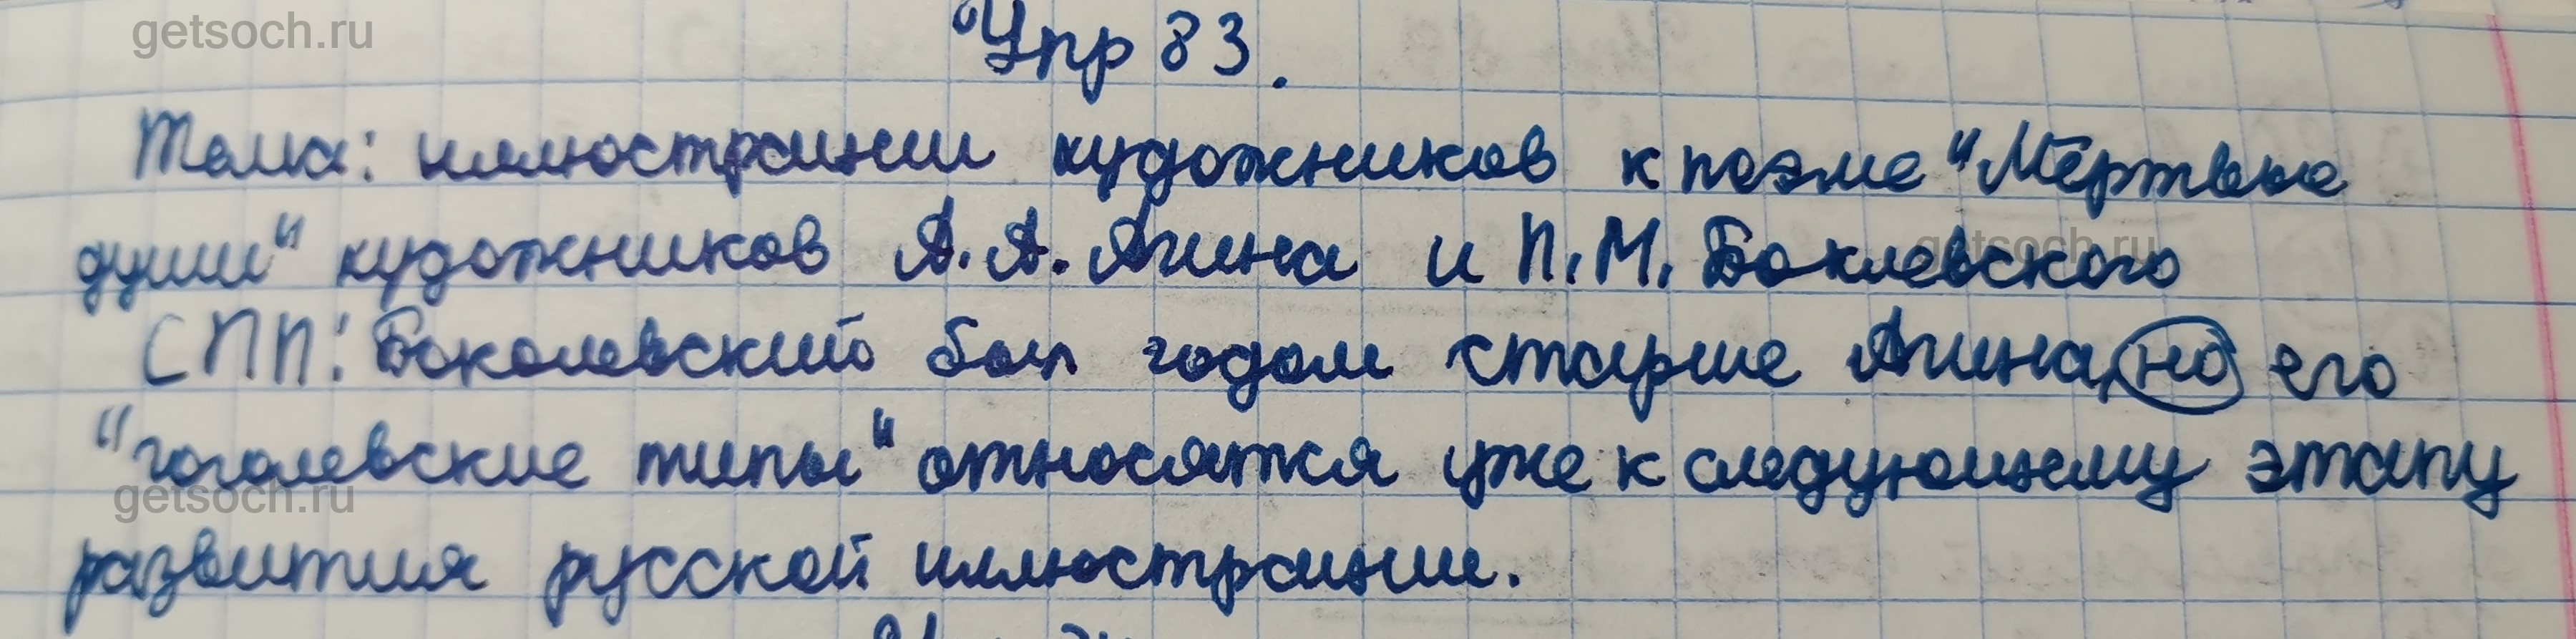 getsoch.ru
Упр 83.
Тема: иллюстрации художников к поэме "Мёртвые
души" художников А.А. Агина и П.М. Боклевского
getsoch.ru
СПП: Боколевский был годом старше Агина, но его
"гоголевские типы" относятся уже к следующему этапу
getsoch.ru
развития русской иллюстрации.